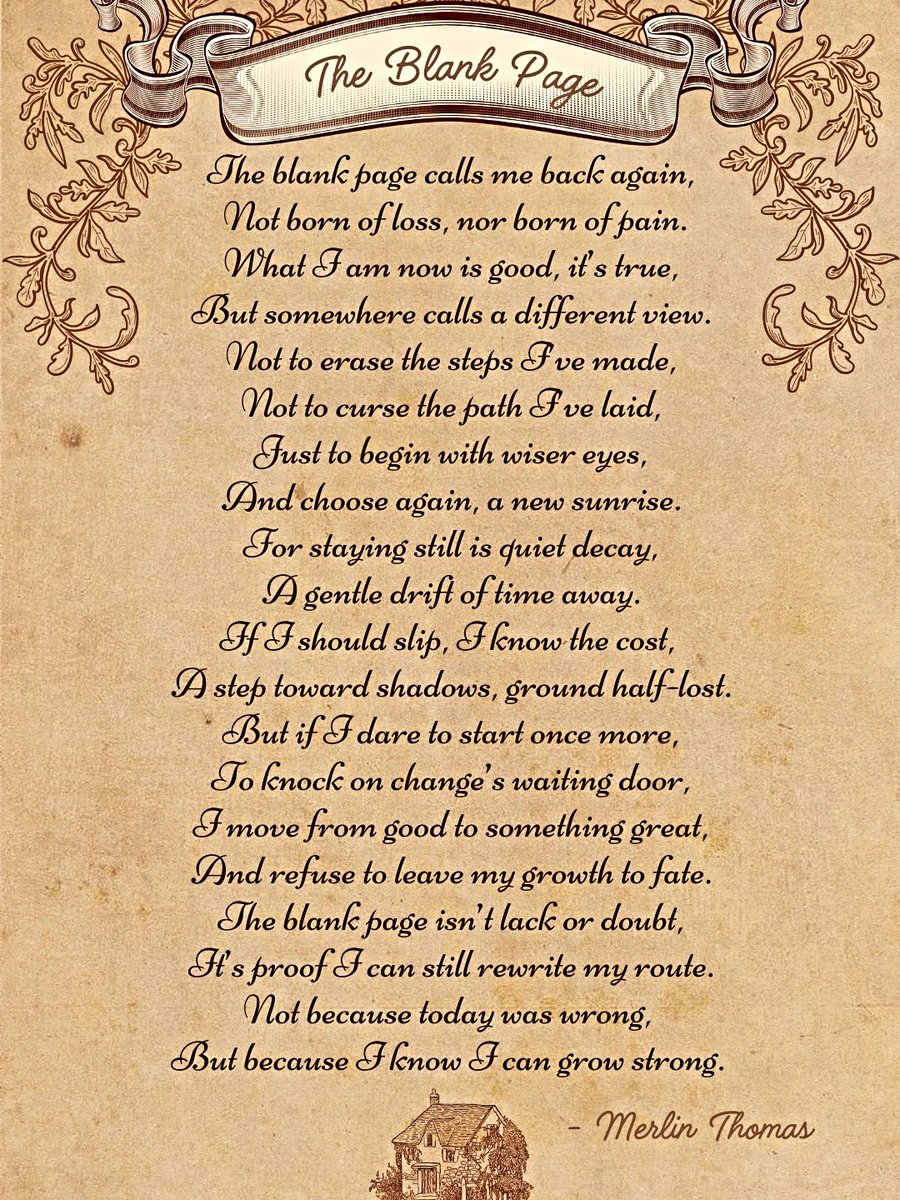 The Blank Page
The blank page calls me back again,
Not born of loss, nor born of pain.
What I am now is good, it's true,
But somewhere calls a different view.
Not to erase the steps I've made,
Not to curse the path I've laid,
Just to begin with wiser eyes,
And choose again, a new sunrise.
For staying still is quiet decay,
A gentle drift of time away.
If I should slip, I know the cost,
A step toward shadows, ground half-lost.
But if I dare to start once more,
To knock on change's waiting door,
I move from good to something great,
And refuse to leave my growth to fate.
The blank page isn't lack or doubt,
It's proof I can still rewrite my route.
Not because today was wrong,
But because I know I can grow strong.
- Merlin Thomas